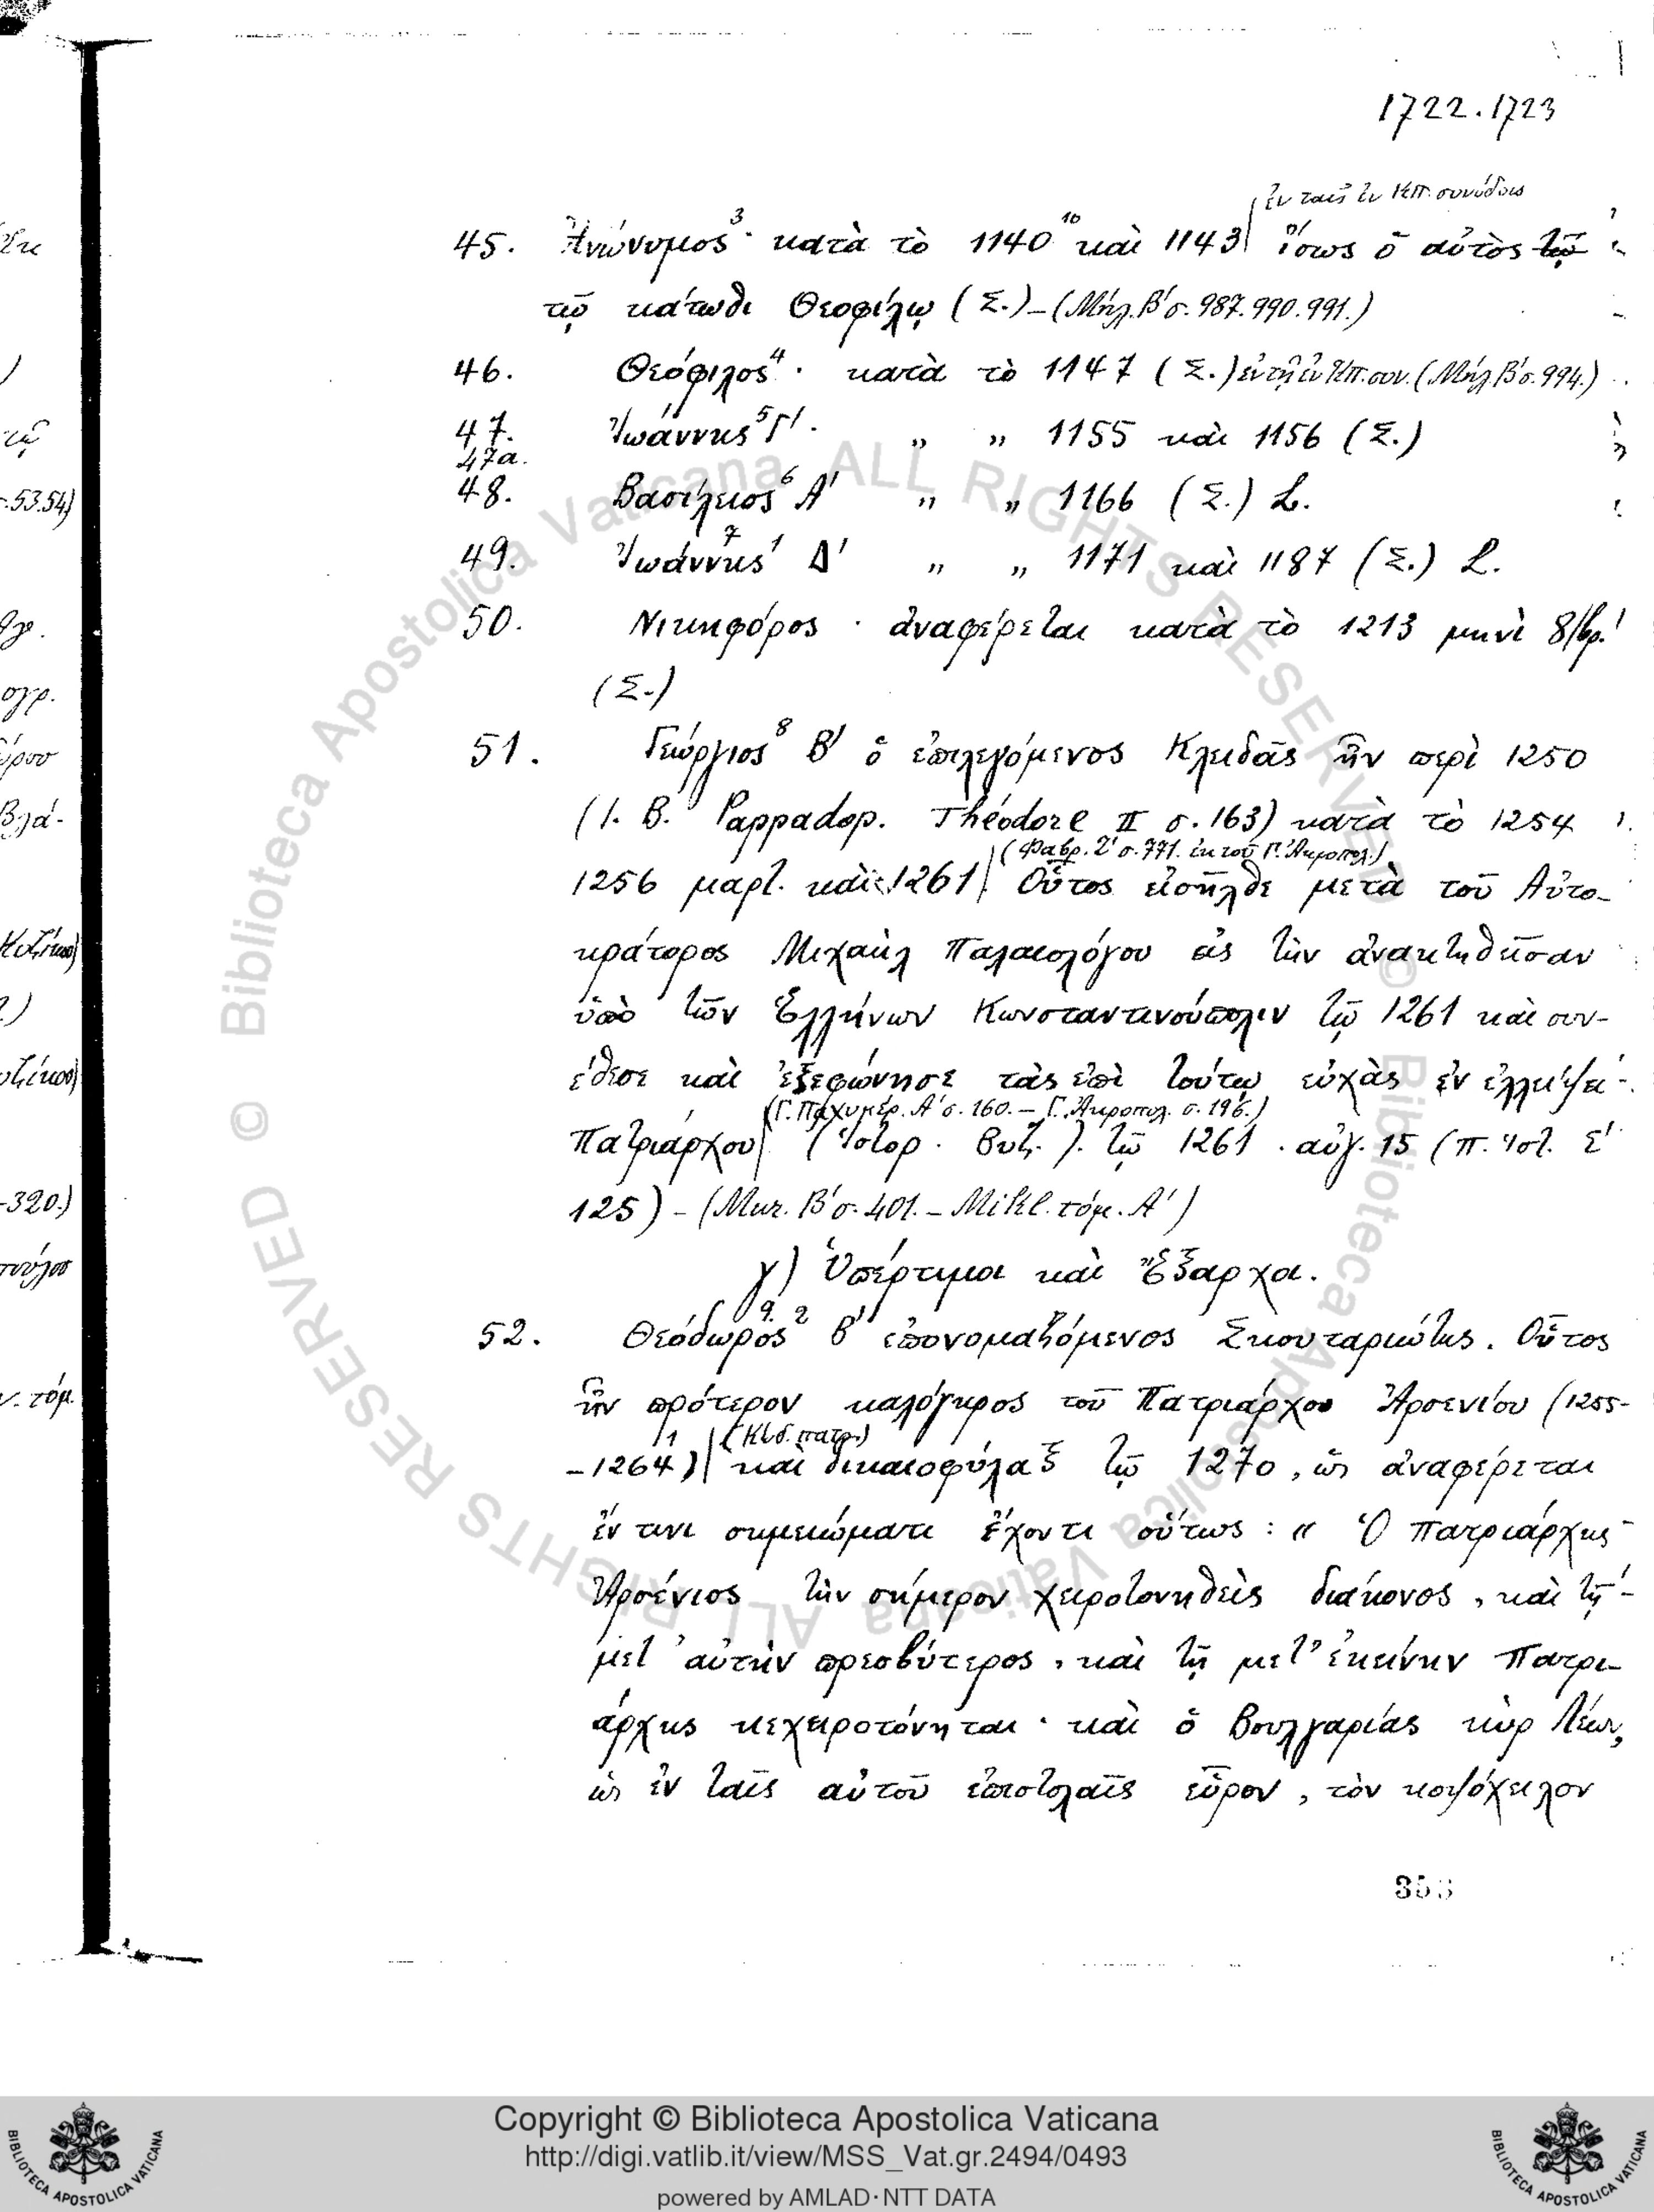 1722.1723
ἐν ταῖς ἐν Κπ. συνόδοις
45. Ἀνώνυμος³· κατὰ τὸ 1140¹⁰ καὶ 1143 ἴσως ὁ αὐτὸς τῷ
τῷ κάτωθι Θεοφίλῳ (Σ.) – (Μηλ. Β΄ σ. 987. 990. 991.)
46. Θεόφιλος⁴· κατὰ τὸ 1147 (Σ.) ἐν τῇ ἐν Κπ. συν. (Μηλ. Β΄ σ. 994.)
47. Ἰωάννης⁵ Γ΄. „ „ 1155 καὶ 1156 (Σ.)
47α.
48. Βασίλειος⁶ Α΄ „ „ 1166 (Σ.) L.
49. Ἰωάννης⁷ ¹ Δ΄ „ „ 1171 καὶ 1187 (Σ.) L.
50. Νικηφόρος · ἀναφέρεται κατὰ τὸ 1213 μηνὶ 8/βρ.
(Σ.)
51. Γεώργιος⁸ Β΄ ὁ ἐπιλεγόμενος Κλειδᾶς ἦν περὶ 1250
(I. B. Pappadop. Théodore II σ. 163) κατὰ τὸ 1254
(Φαβρ. Ζ΄ σ. 771. ἐκ τοῦ Γ. Ἀκροπολ.)
1256 μαρτ. καὶ 1261 Οὗτος εἰσῆλθε μετὰ τοῦ Αὐτο-
κράτορος Μιχαὴλ Παλαιολόγου εἰς τὴν ἀνακτηθεῖσαν
ὑπὸ τῶν Ἑλλήνων Κωνσταντινούπολιν τῷ 1261 καὶ συν-
έθεσε καὶ ἐξεφώνησε τὰς ἐπὶ τούτῳ εὐχὰς ἐν ἐλλείψει
(Γ. Παχυμέρ. Α΄ σ. 160. – Γ. Ἀκροπολ. σ. 196.)
Πατριάρχου (Ἱστορ. Βυζ.). τῷ 1261. αὐγ. 15 (Π. Ἱστ. Σ΄
125) – (Μικ. Β΄ σ. 401. – Mikl. τόμ. Α΄)
γ) Ὑπέρτιμοι καὶ Ἔξαρχοι.
52. Θεόδωρος⁹· ² Β΄ ἐπονομαζόμενος Σκουταριώτης. Οὗτος
ἦν πρότερον καλόγηρος τοῦ Πατριάρχου Ἀρσενίου (1255-
(Κώδ. πατρ.)
-1264)¹ καὶ δικαιοφύλαξ τῷ 1270, ὡς ἀναφέρεται
ἔν τινι σημειώματι ἔχοντι οὕτως: « Ὁ Πατριάρχης
Ἀρσένιος τὴν σήμερον χειροτονηθεὶς διάκονος, καὶ τῇ
μετ' αὐτὴν πρεσβύτερος, καὶ τῇ μετ' ἐκείνην Πατρι-
άρχης κεχειροτόνηται· καὶ ὁ Βουλγαρίας κὺρ Λέων,
ὡς ἐν ταῖς αὐτοῦ ἐπιστολαῖς εὗρον, τὸν κοψόχειλον
© Biblioteca Apostolica Vaticana ALL RIGHTS RESERVED
Copyright © Biblioteca Apostolica Vaticana
http://digi.vatlib.it/view/MSS_Vat.gr.2494/0493
powered by AMLAD·NTT DATA
BIBLIOTECA APOSTOLICA VATICANA
BIBLIOTECA APOSTOLICA VATICANA